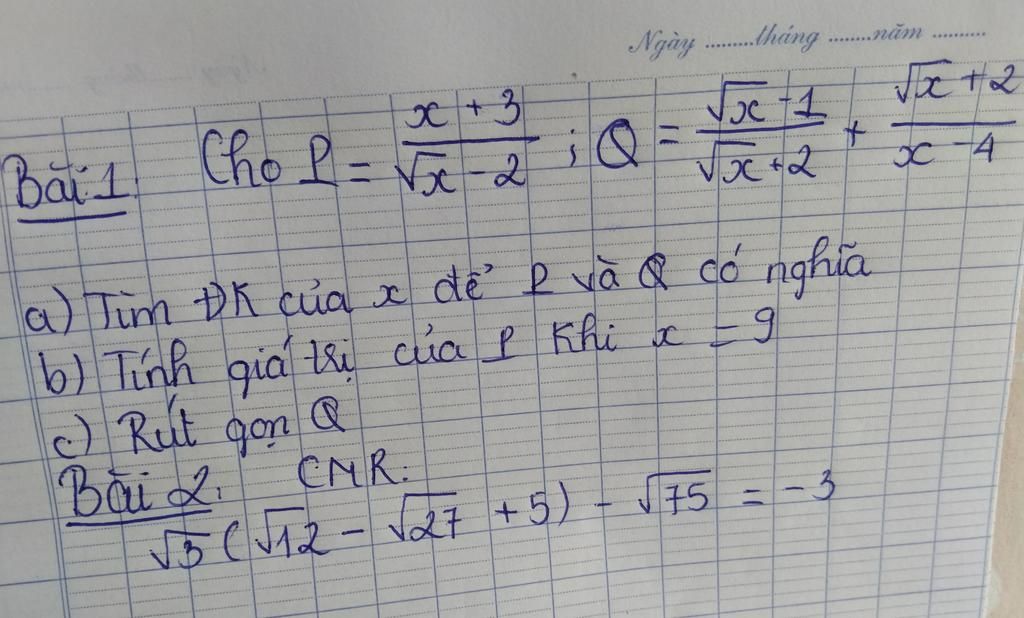 Ngày ......... tháng ........ năm ..........
Bài 1: Cho P = (x + 3)/(√x - 2) ; Q = (√x - 1)/(√x + 2) + (√x + 2)/(x - 4)
a) Tìm ĐK của x để P và Q có nghĩa
b) Tính giá trị của P khi x = 9
c) Rút gọn Q
Bài 2. CMR:
√3 (√12 - √27 + 5) - √75 = -3